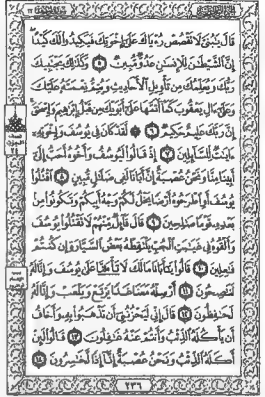 قَالَ يَٰبُنَىَّ لَا تَقْصُصْ رُءْيَاكَ عَلَىٰٓ إِخْوَتِكَ فَيَكِيدُوا۟ لَكَ كَيْدًا ۖ
إِنَّ ٱلشَّيْطَٰنَ لِلْإِنسَٰنِ عَدُوٌّ مُّبِينٌ ٥ وَكَذَٰلِكَ يَجْتَبِيكَ
رَبُّكَ وَيُعَلِّمُكَ مِن تَأْوِيلِ ٱلْأَحَادِيثِ وَيُتِمُّ نِعْمَتَهُۥ عَلَيْكَ
وَعَلَىٰٓ ءَالِ يَعْقُوبَ كَمَآ أَتَمَّهَا عَلَىٰٓ أَبَوَيْكَ مِن قَبْلُ إِبْرَٰهِيمَ وَإِسْحَٰقَ ۚ
إِنَّ رَبَّكَ عَلِيمٌ حَكِيمٌ ٦ ۞ لَّقَدْ كَانَ فِى يُوسُفَ وَإِخْوَتِهِۦٓ
ءَايَٰتٌ لِّلسَّآئِلِينَ ٧ إِذْ قَالُوا۟ لَيُوسُفُ وَأَخُوهُ أَحَبُّ إِلَىٰٓ
أَبِينَا مِنَّا وَنَحْنُ عُصْبَةٌ إِنَّ أَبَانَا لَفِى ضَلَٰلٍ مُّبِينٍ ٨ ٱقْتُلُوا۟
يُوسُفَ أَوِ ٱطْرَحُوهُ أَرْضًا يَخْلُ لَكُمْ وَجْهُ أَبِيكُمْ وَتَكُونُوا۟ مِنۢ
بَعْدِهِۦ قَوْمًا صَٰلِحِينَ ٩ قَالَ قَآئِلٌ مِّنْهُمْ لَا تَقْتُلُوا۟ يُوسُفَ
وَأَلْقُوهُ فِى غَيَٰبَتِ ٱلْجُبِّ يَلْتَقِطْهُ بَعْضُ ٱلسَّيَّارَةِ إِن كُنتُمْ
فَٰعِلِينَ ١٠ قَالُوا۟ يَٰٓأَبَانَا مَا لَكَ لَا تَأْمَ۫نَّا عَلَىٰ يُوسُفَ وَإِنَّا لَهُۥ
لَنَٰصِحُونَ ١١ أَرْسِلْهُ مَعَنَا غَدًا يَرْتَعْ وَيَلْعَبْ وَإِنَّا لَهُۥ
لَحَٰفِظُونَ ١٢ قَالَ إِنِّى لَيَحْزُنُنِىٓ أَن تَذْهَبُوا۟ بِهِۦ وَأَخَافُ
أَن يَأْكُلَهُ ٱلذِّئْبُ وَأَنتُمْ عَنْهُ غَٰفِلُونَ ١٣ قَالُوا۟ لَئِنْ
أَكَلَهُ ٱلذِّئْبُ وَنَحْنُ عُصْبَةٌ إِنَّآ إِذًا لَّخَٰسِرُونَ ١٤
٢٣٦